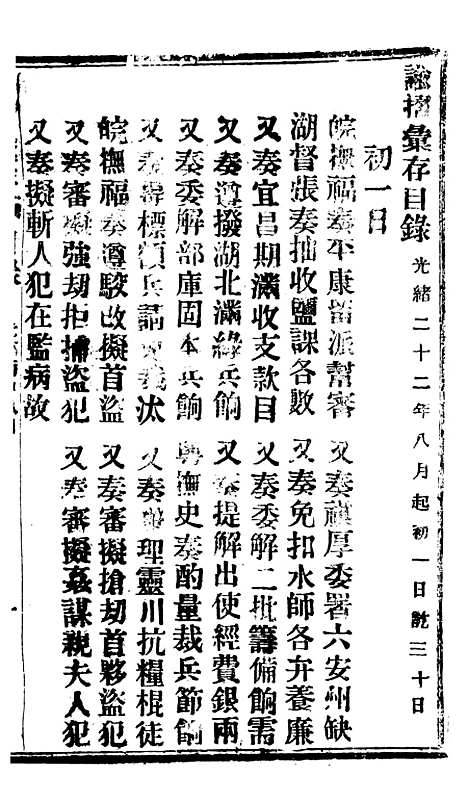 諭摺彙存目錄 光緒二十二年八月起初一日訖三十日
初一日
皖撫福奏平康留派幫審
又奏 厚委署六安州缺
湖督張奏抽收鹽課各數
又奏免扣水師各弁養廉
又奏宜昌期滿收支款目
又奏委解二批籌備餉需
又奏遵撥湖北滿綠兵餉
又奏提解出使經費銀兩
又奏委解部庫固本兵餉
粵撫史奏酌量裁兵節餉
又奏 標額兵請 汰
又奏 理靈川抗糧棍徒
皖撫福奏遵駁改擬首盜
又奏審擬搶劫首夥盜犯
又奏審擬強劫拒捕盜犯
又奏審擬姦謀親夫人犯
又奏擬斬人犯在監病故